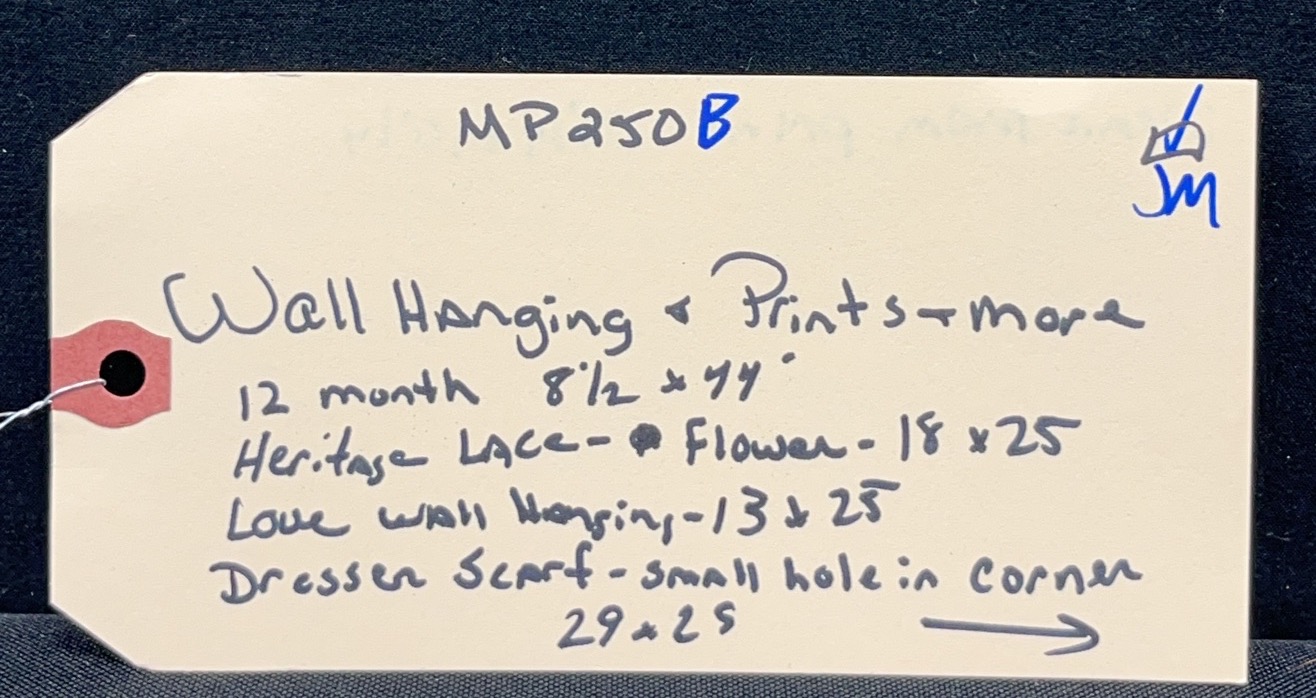 MP250B
JM
Wall Hanging & Prints - more
12 month 8 1/2 x 44"
Heritage Lace - Flower - 18 x 25
Love Wall Hanging - 13 x 25
Dresser Scarf - small hole in corner
29 x 25